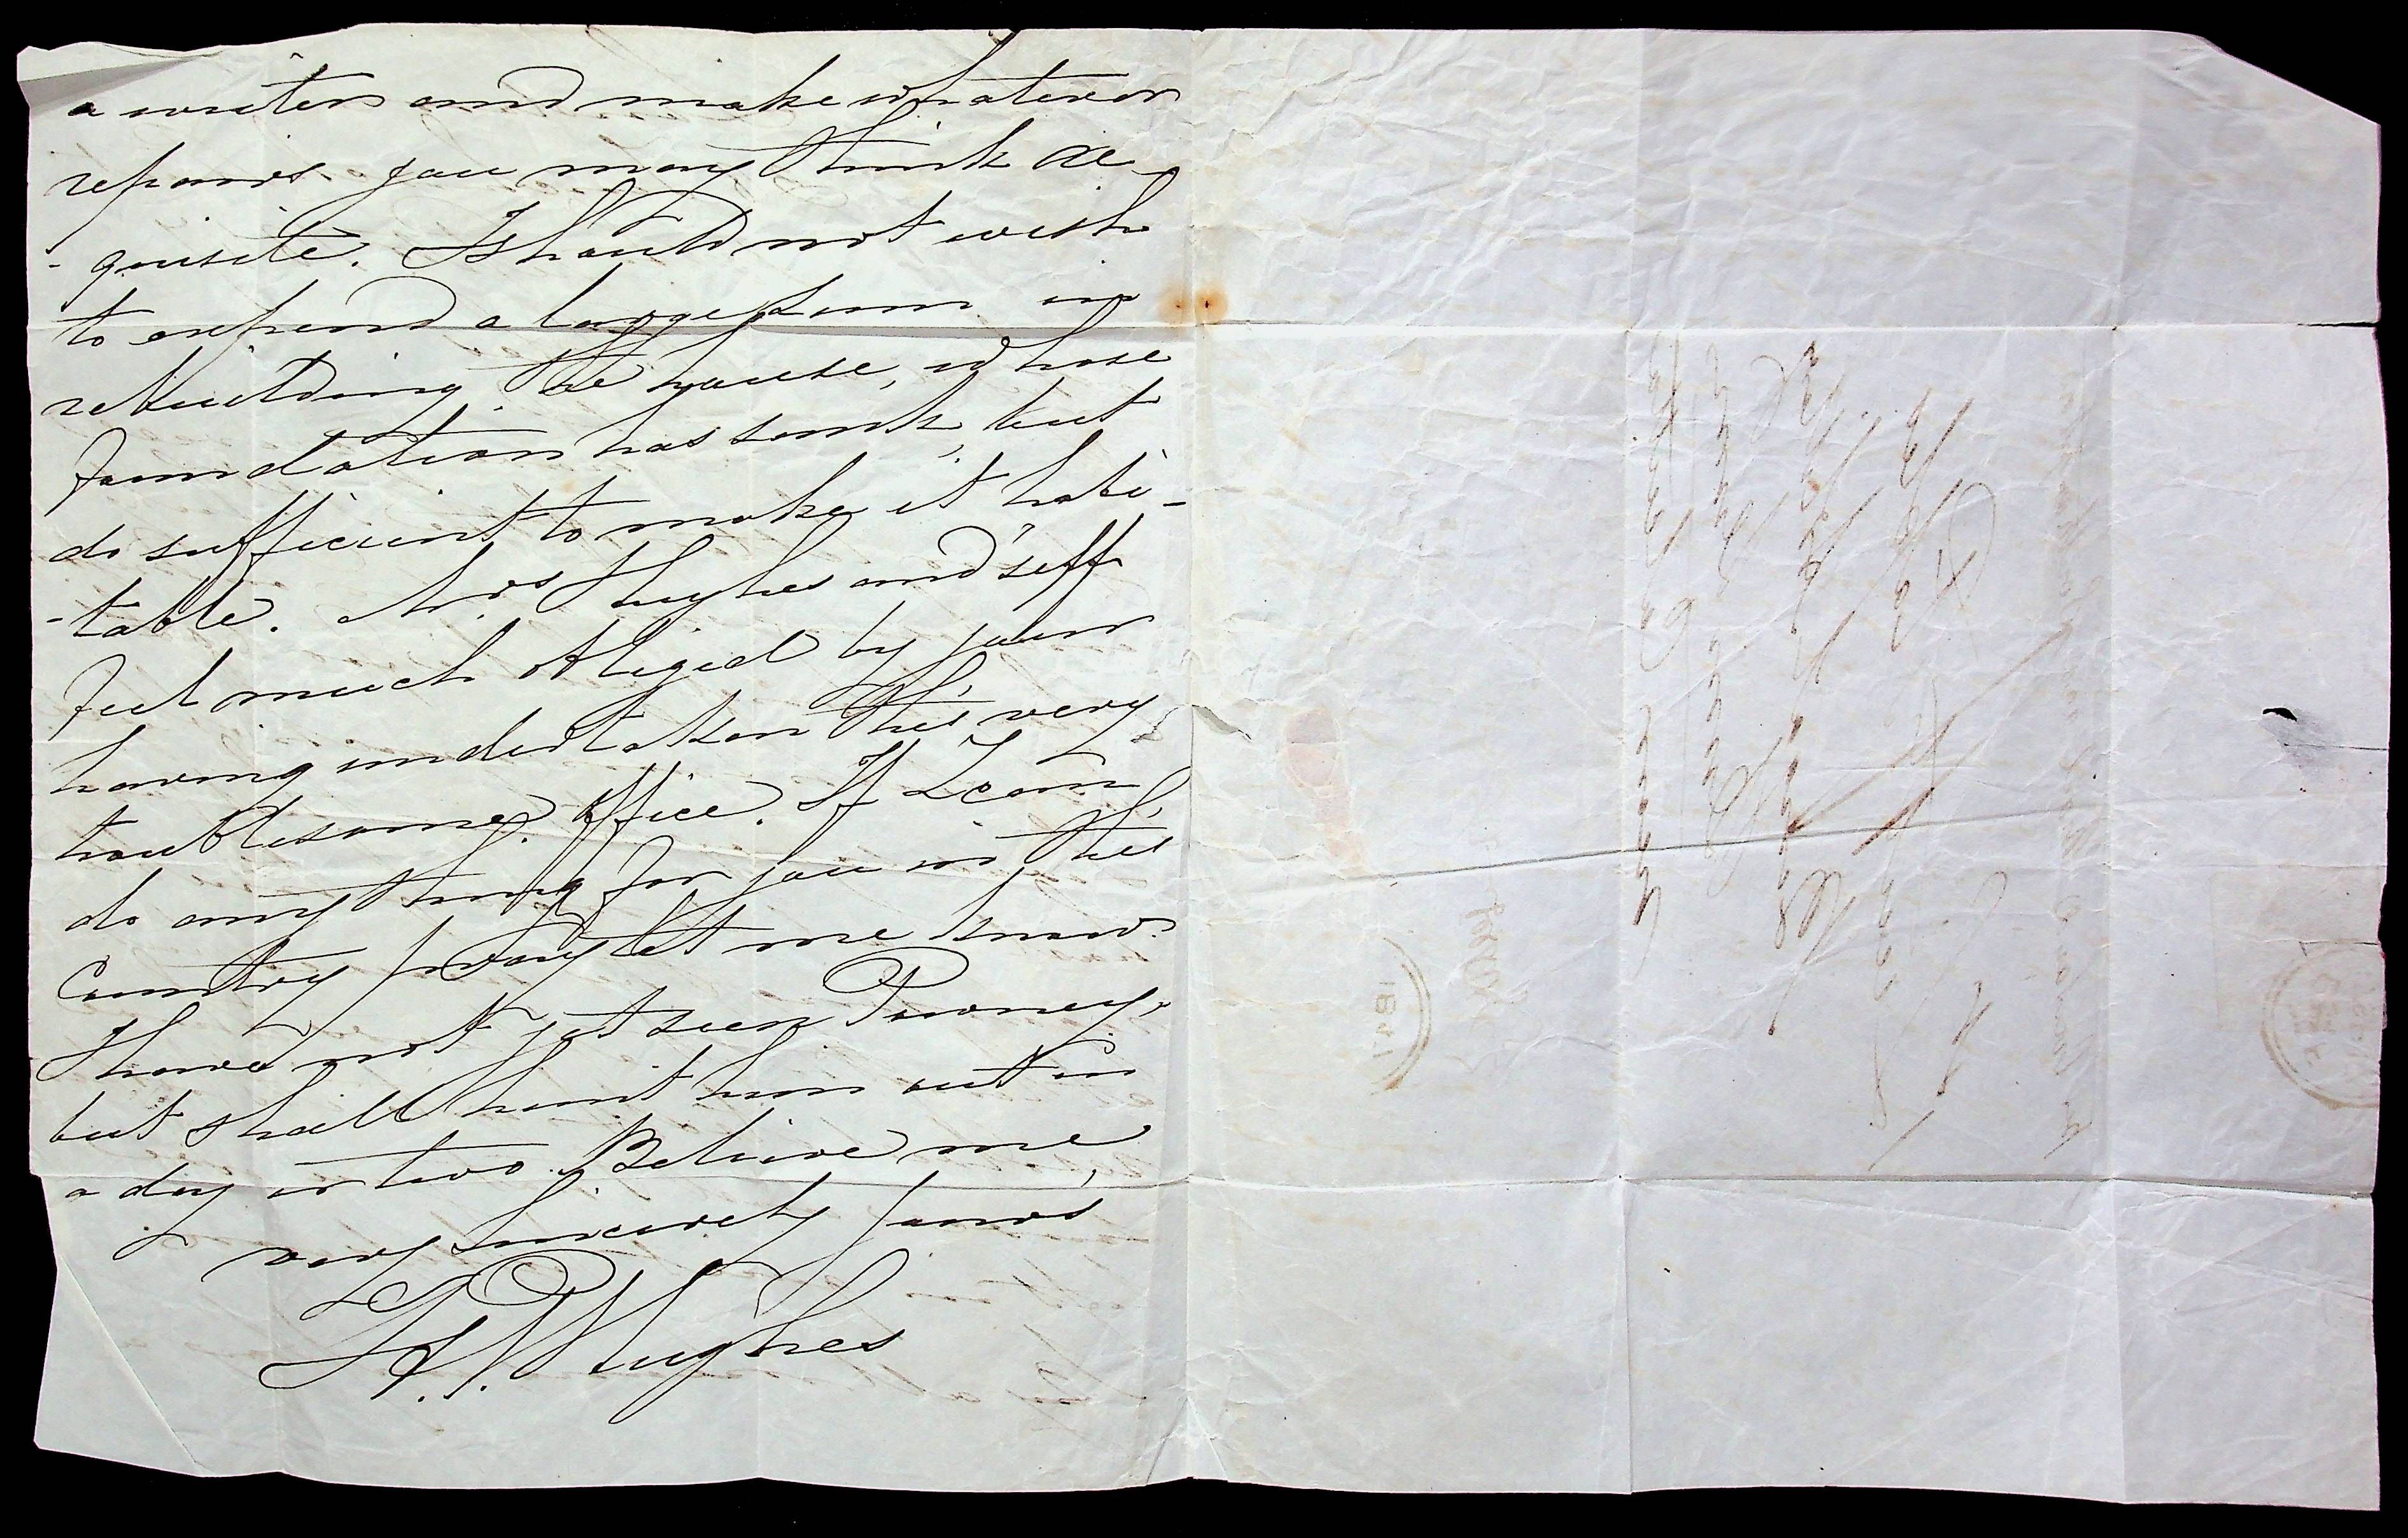 a writer and make whatever
repairs you may think re-
-quisite. I should not wish
to expend a large sum in
rebuilding the house, whose
foundation has sunk, but
do sufficient to make it habi-
-table. Mrs Hughes and self
feel much obliged by your
having undertaken this very
troublesome office. If I can
do any thing for you in this
Country pray let me know.
I have not yet seen
but shall hunt him out in
a day or two. Believe me,
very sincerely yours
Hughes
1841